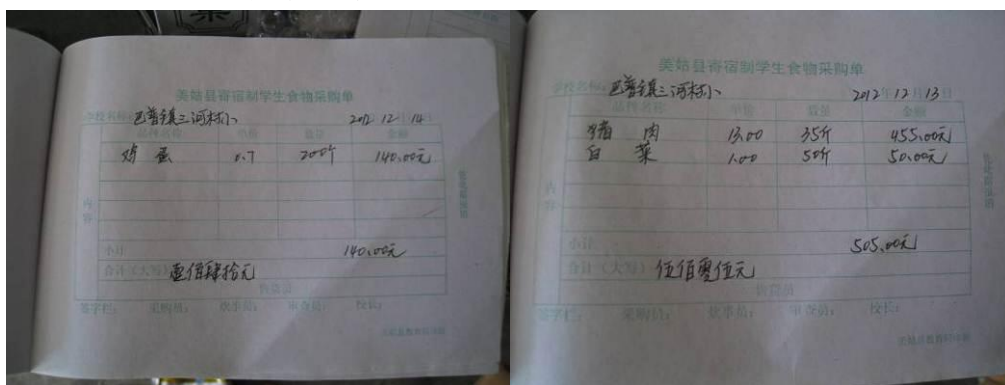 美姑县寄宿制学生食物采购单
学校名称：巴普镇三河村小 2012.12.14日
品种名称 单价 数量 金额
鸡蛋 0.7 200个 140.00元
内容
小计 140.00元
合计（大写） 壹佰肆拾元
售货员
签字栏： 采购员： 炊事员： 审查员： 校长：
美姑县寄宿制学生食物采购单
学校名称：巴普镇三河村小 2012年12月13日
品种名称 单价 数量 金额
猪肉 13.00 35斤 455.00元
白菜 1.00 50斤 50.00元
内容
小计 505.00元
合计（大写） 伍佰零伍元
售货员
签字栏： 采购员： 炊事员： 审查员： 校长：